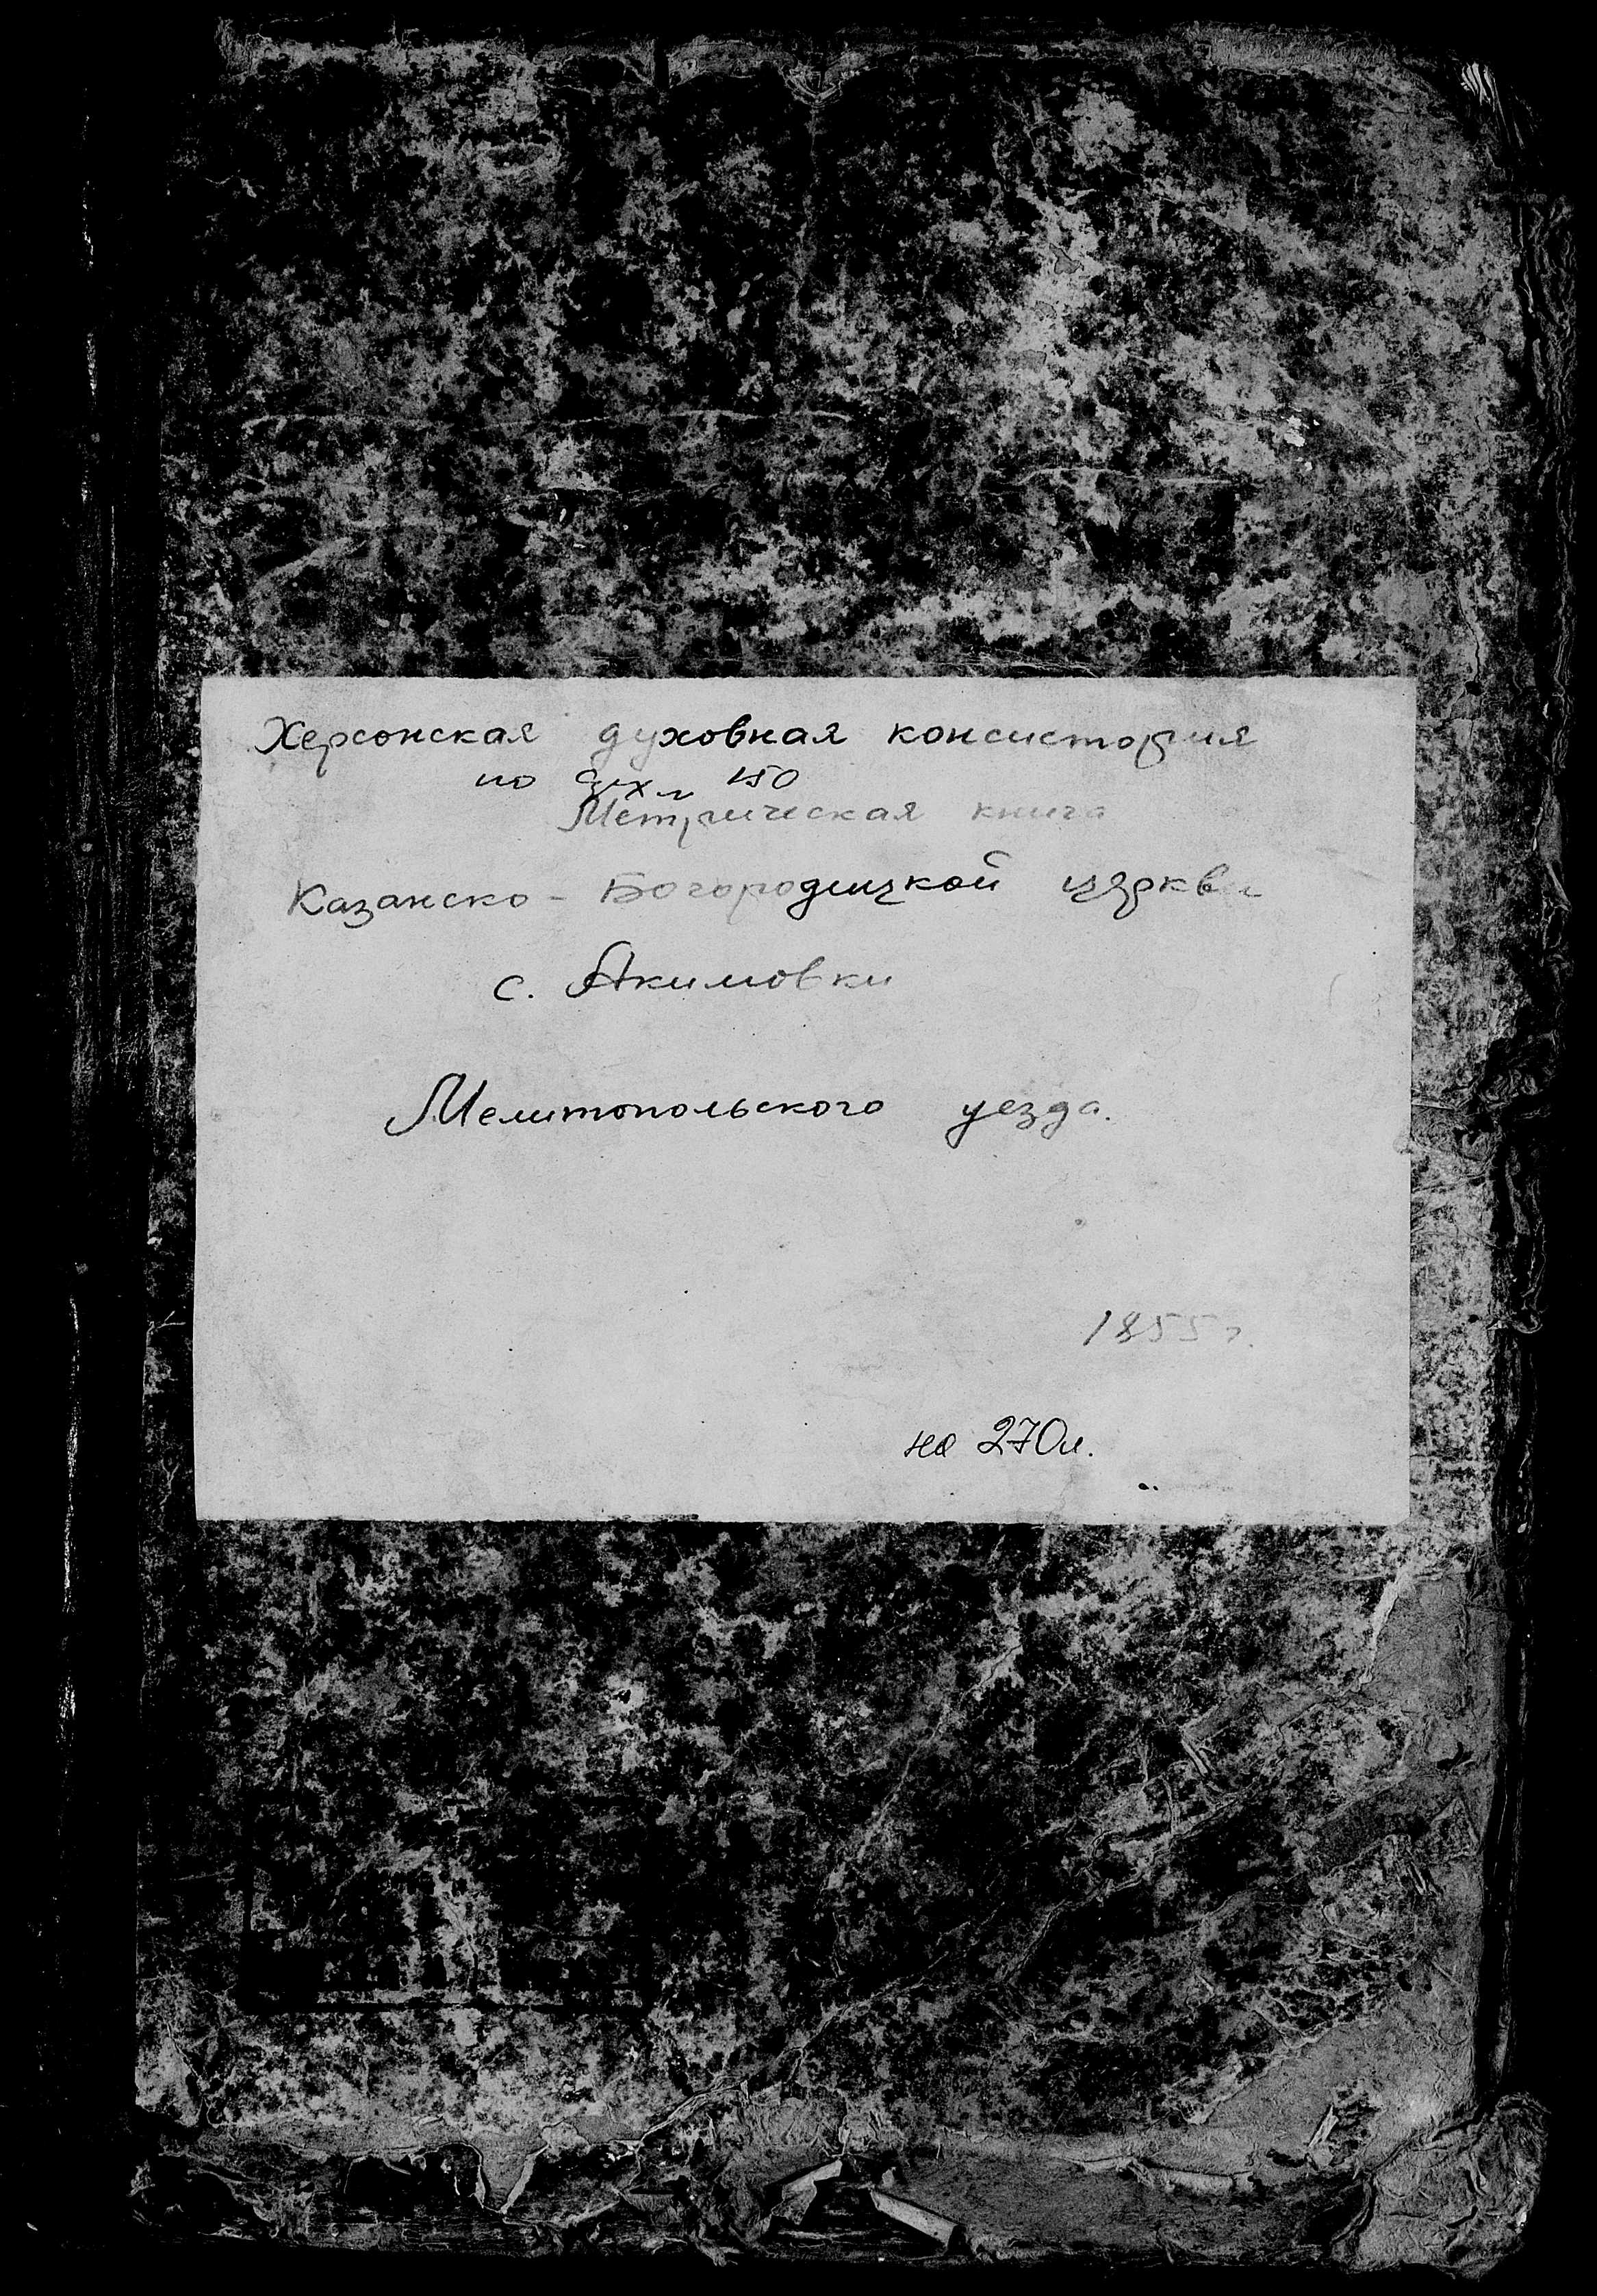 Херсонская духовная консистория
по 150
Метрическая книга
Казанско-Богородицкой церкви
с. Акимовки
Мелитопольского уезда.
1855 г.
на 270 л.